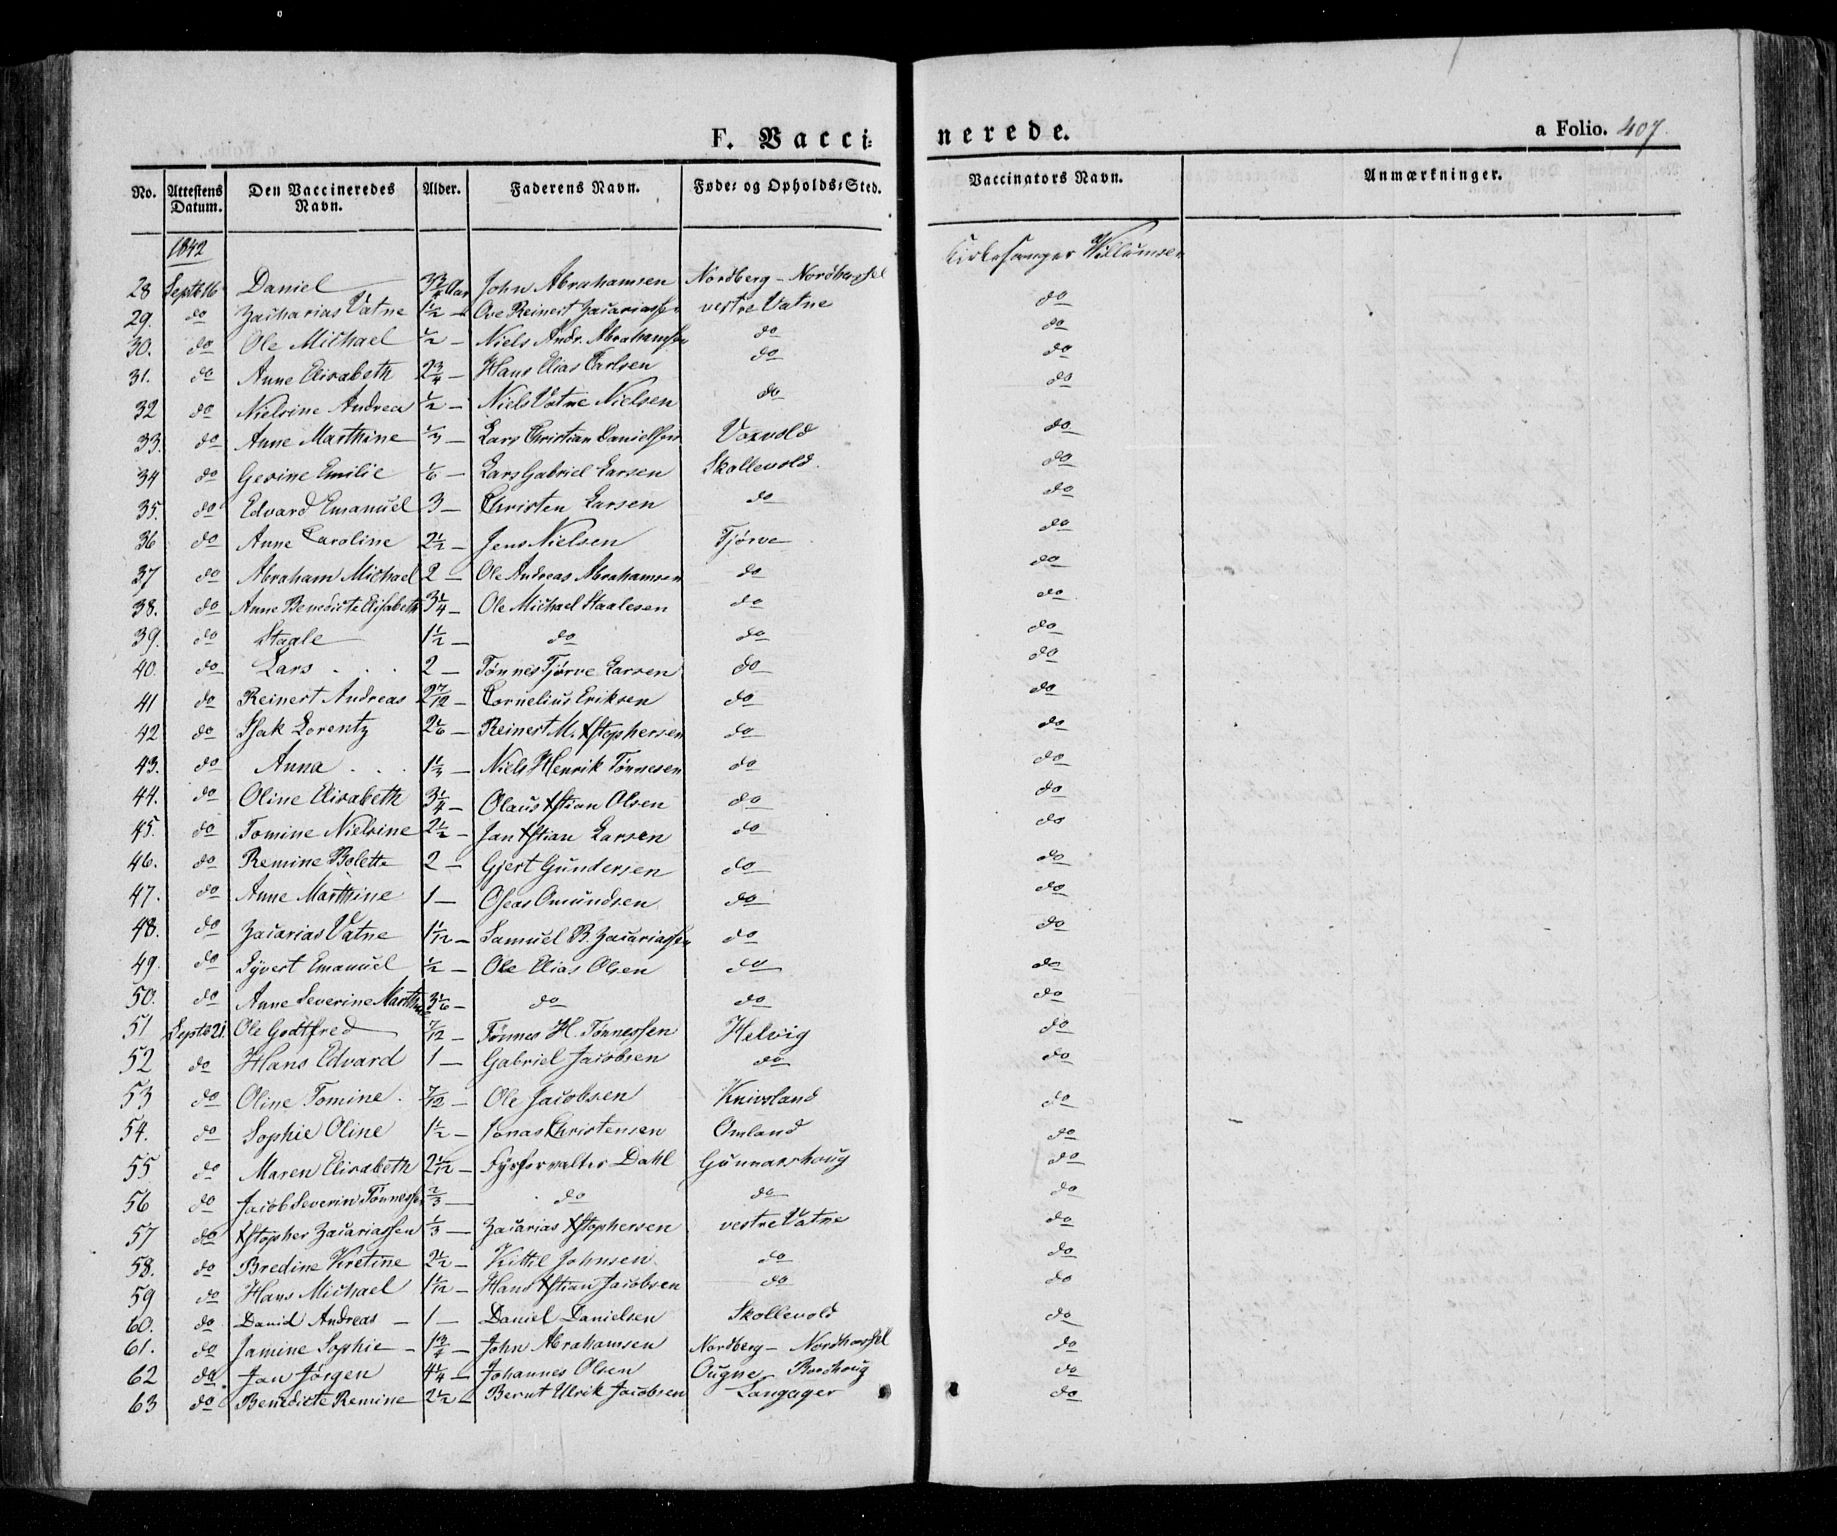 F. Vacci-
nerede.
a Folio. 407.
No. Attestens Datum. Den Vaccineredes Navn. Alder. Faderens Navn. Føde- og Opholds-Sted. Vaccinators Navn. Anmærkninger.
1842
28 Septb 16 Daniel 3 3/4 Aar John Abrahamsen Nordberg - Nordhassel Kirkesanger Willumsen
29. do Zacharias Vatne 1 1/2 - Ove Reinert Zacariassen vestre Vatne do
30. do Ole Michael 1/2 - Niels Andr. Abrahamsen do do
31. do Anne Elisabeth 2 3/4 - Hans Elias Carlsen do do
32 do Nielsine Andrea 1/2 - Niels Vatne Nielsen do do
33. do Anne Marthine 1/3 - Lars Christian Danielsen Voxvold do
34 do Gesine Emilie 1/6 - Lars Gabriel Larsen Skollevold. do
35. do Edvard Emanuel 3 - Christen Larsen do do
36 do Anne Caroline 2 1/2 - Jens Nielsen Tjørve do
37 do Abraham Michael 2 - Ole Andreas Abrahamsen do do
38. do Anne Benedicte Elisabeth 3 1/4 - Ole Michael Staalesen do do
39. do Staale 1 1/2 - do do do
40. do Lars . . . 2 - Tønnes Tjørve Larsen do do
41 do Reinert Andreas 2 7/12 - Cornelius Eriksen do do
42 do Isak Lorentz 2 1/6 - Reinert M. Xstophersen do do
43. do Anna . . . 1 1/3 - Niels Henrik Tønnesen do do
44. do Oline Elisabeth 3 1/4 - Olaus Xstian Olsen do do
45. do Tomine Nielsine 2 1/2 - Jan Xstian Larsen do do
46. do Remine Bolette 2 - Gjert Gundersen do do
47. do Anne Marthine 1 - Oseas Omundsen do do
48. do Zacarias Vatne 1 1/12 - Samuel B. Zacariassen do do
49. do Syvert Emanuel 1/2 - Ole Elias Olsen do do
50. do Anne Severine Marthine 3 1/6 - do do do
51 Septb 21. Ole Godtfred 7/12 - Tønnes H. Tønnessen Helvig do
52 do Hans Edvard 1 - Gabriel Jacobsen do do
53 do Oline Tomine . 7/12 - Ole Jacobsen Knivsland do
54. do Sophie Oline 1 1/2 - Jonas Christensen Omland do
55 do Maren Elisabeth 2 1/12 - Fyrforvalter Dahl Gunnarshoug do
56 do Jacob Severin Tønnessen 2/3 - do do do
57 do Xstopher Zacariassen 1/3 - Zacarias Xstophersen vestre Vatne do
58. do Bredine Kistine 2 1/2 - Kittil Johnsen do do
59 do Hans Michael 1 1/12 - Hans Xstian Jacobsen do do
60. do David Andreas - 1 - Daniel Danielsen Skollevold do
61. do Jamine Sophie - 1 3/4 - John Abrahamsen Nordberg - Nordhassel do
62 do Jan Jørgen 4 1/4 - Johannes Olsen do
63 do Benedicte Remine 2 1/2 - Bernt Ulrik Jacobsen Langager do